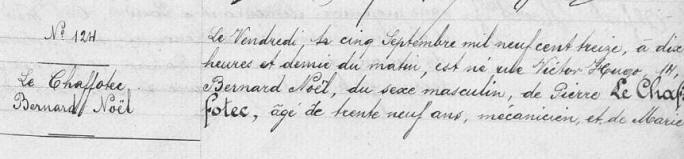 N° 124
Le Chaffotec
Bernard Noël
Le Vendredi, le cinq Septembre mil neuf cent treize, à dix
heures et demie du matin, est né rue Victor Hugo, 14,
Bernard Noël, du sexe masculin, de Pierre Le Chaf-
fotec, âgé de trente neuf ans, mécanicien, et de Marie